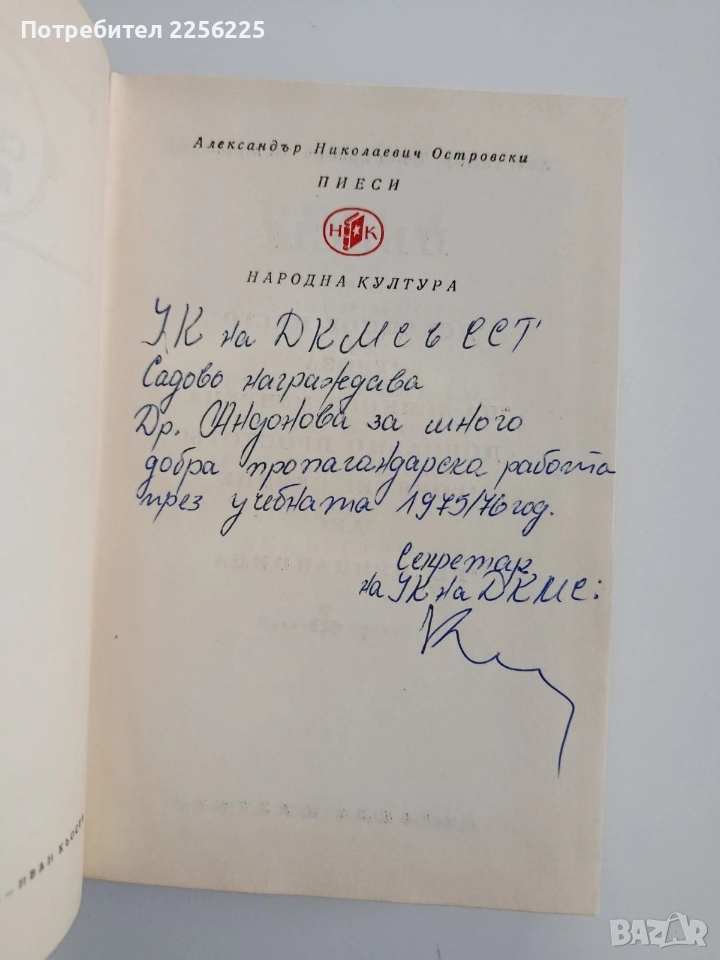 Потребител 2256225
Александър Николаевич Островски
ПИЕСИ
Н К
НАРОДНА КУЛТУРА
УК на ДКМС в ССТ
Садово награждава
Др. Андонова за много
добра пропагандарска работа
през учебната 1975/76 год.
Секретар
на УК на ДКМС:
— ИВАН КЬОСЕВ
BAZAR